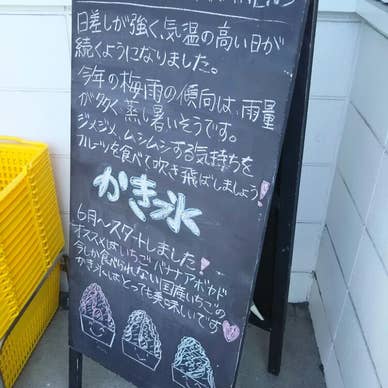 日差しが強く、気温の高い日が
続くようになりました。
今年の梅雨の傾向は、雨量
が多く、蒸し暑いそうです。
ジメジメ、ムシムシする気持ちを
フルーツを食べて吹き飛ばしましょう!
かき氷
6月〜スタートしました!
オススメはいちごバナナアボカド
今しか食べられない国産いちごの
かき氷はとっても美味しいです